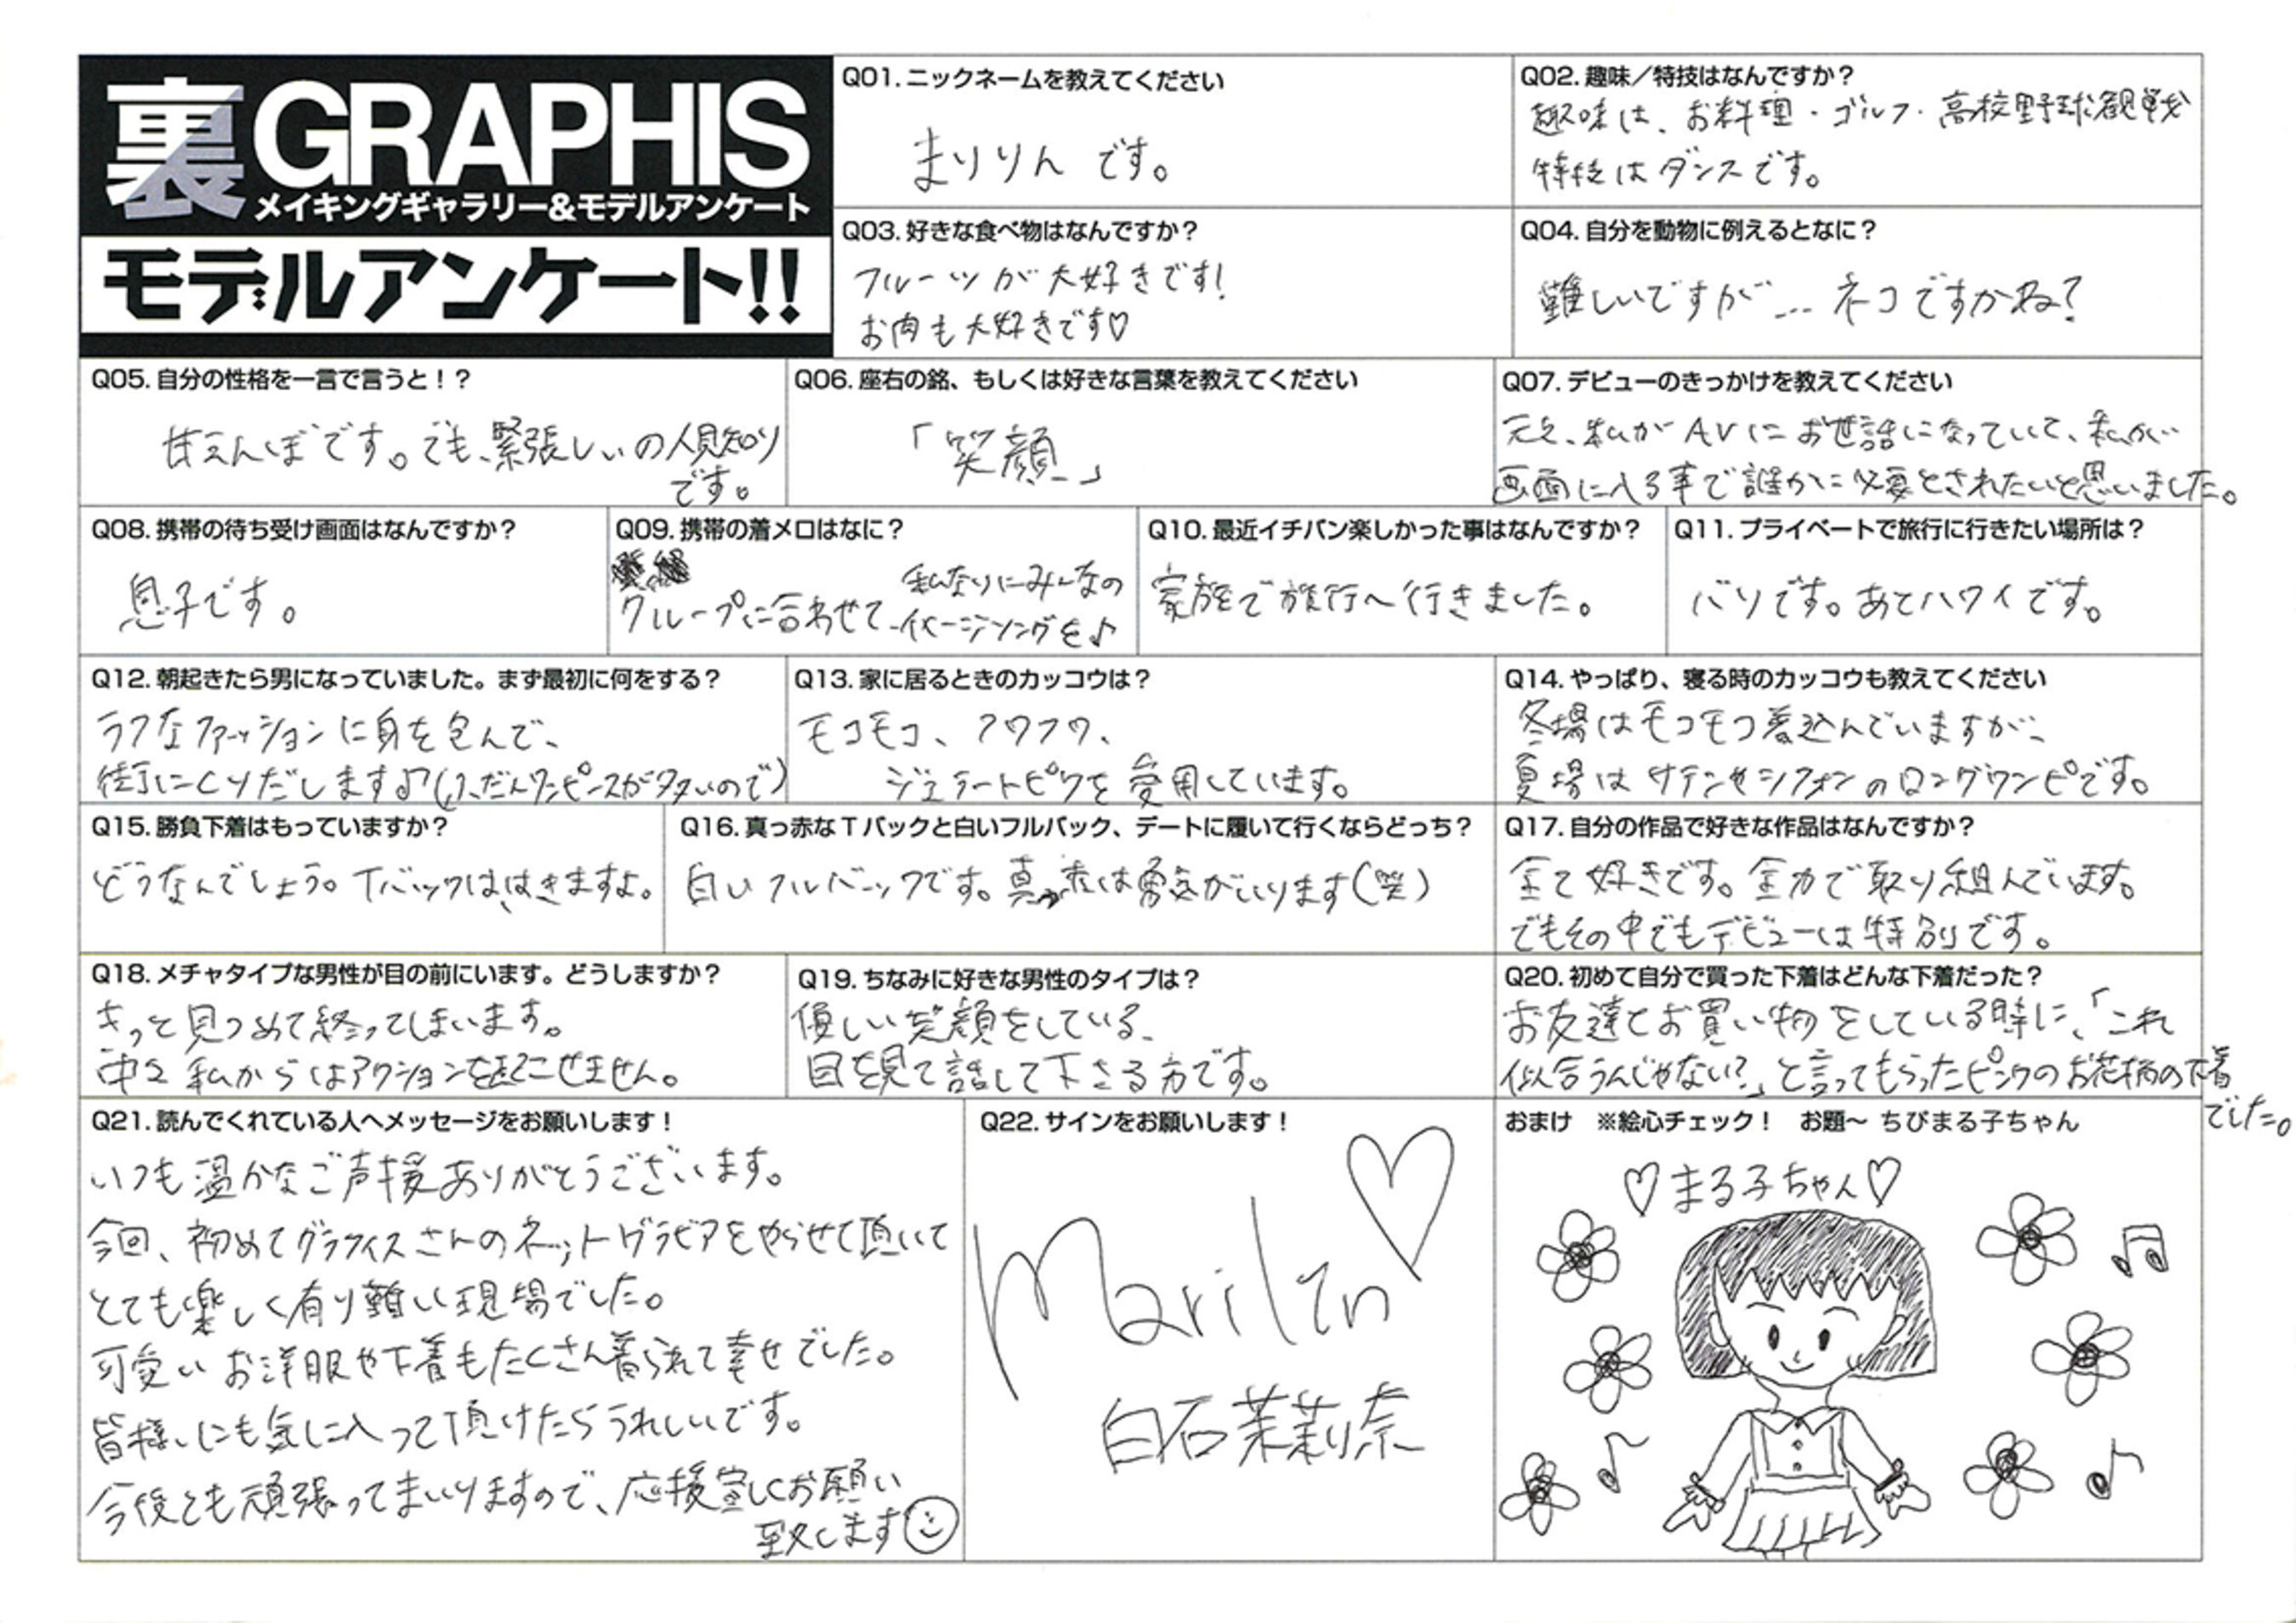 裏GRAPHIS
メイキングギャラリー&モデルアンケート
モデルアンケート!!
Q01. ニックネームを教えてください
まりりん です。
Q02. 趣味／特技はなんですか？
趣味は、お料理・ゴルフ・高校野球観戦
特技はダンスです。
Q03. 好きな食べ物はなんですか？
フルーツが大好きです！
お肉も大好きです♡
Q04. 自分を動物に例えるとなに？
難しいですが… ネコですかね？
Q05. 自分の性格を一言で言うと！？
甘えんぼです。でも、緊張しいの人見知り
です。
Q06. 座右の銘、もしくは好きな言葉を教えてください
「笑顔」
Q07. デビューのきっかけを教えてください
元々、私がAVにお世話になっていて、私が
画面に入る事で誰かに必要とされたいと思いました。
Q08. 携帯の待ち受け画面はなんですか？
息子です。
Q09. 携帯の着メロはなに？
グループに合わせて、私なりにみんなの
イメージソングを♪
Q10. 最近イチバン楽しかった事はなんですか？
家族で旅行へ行きました。
Q11. プライベートで旅行に行きたい場所は？
バリです。あとハワイです。
Q12. 朝起きたら男になっていました。まず最初に何をする？
ラフなファッションに身を包んで、
街にくりだします♪(ふだんワンピースが多いので)
Q13. 家に居るときのカッコウは？
モコモコ、フワフワ、
ジェラートピケを愛用しています。
Q14. やっぱり、寝る時のカッコウも教えてください
冬場はモコモコ着込んでいますが、
夏場はサテンやシフォンのロングワンピです。
Q15. 勝負下着はもっていますか？
どうなんでしょう。Tバックは、はきますよ。
Q16. 真っ赤なTバックと白いフルバック、デートに履いて行くならどっち？
白いフルバックです。真っ赤は勇気がいります(笑)
Q17. 自分の作品で好きな作品はなんですか？
全て好きです。全力で取り組んでいます。
でもその中でもデビューは特別です。
Q18. メチャタイプな男性が目の前にいます。どうしますか？
きっと見つめて終ってしまいます。
中々私からはアクションを起こせません。
Q19. ちなみに好きな男性のタイプは？
優しい笑顔をしている、
目を見て話して下さる方です。
Q20. 初めて自分で買った下着はどんな下着だった？
お友達とお買い物をしている時に、「これ
似合うんじゃない？」と言ってもらったピンクのお花柄の下着
でした。
Q21. 読んでくれている人へメッセージをお願いします！
いつも温かなご声援ありがとうございます。
今回、初めてグラフィスさんのネットグラビアをやらせて頂いて
とても楽しく有り難い現場でした。
可愛いお洋服や下着もたくさん着られて幸せでした。
皆様にも気に入って頂けたらうれしいです。
今後とも頑張ってまいりますので、応援宜しくお願い
致します
Q22. サインをお願いします！
Marilin♡
白石茉莉奈
おまけ ※絵心チェック！ お題～ ちびまる子ちゃん
♡まる子ちゃん♡